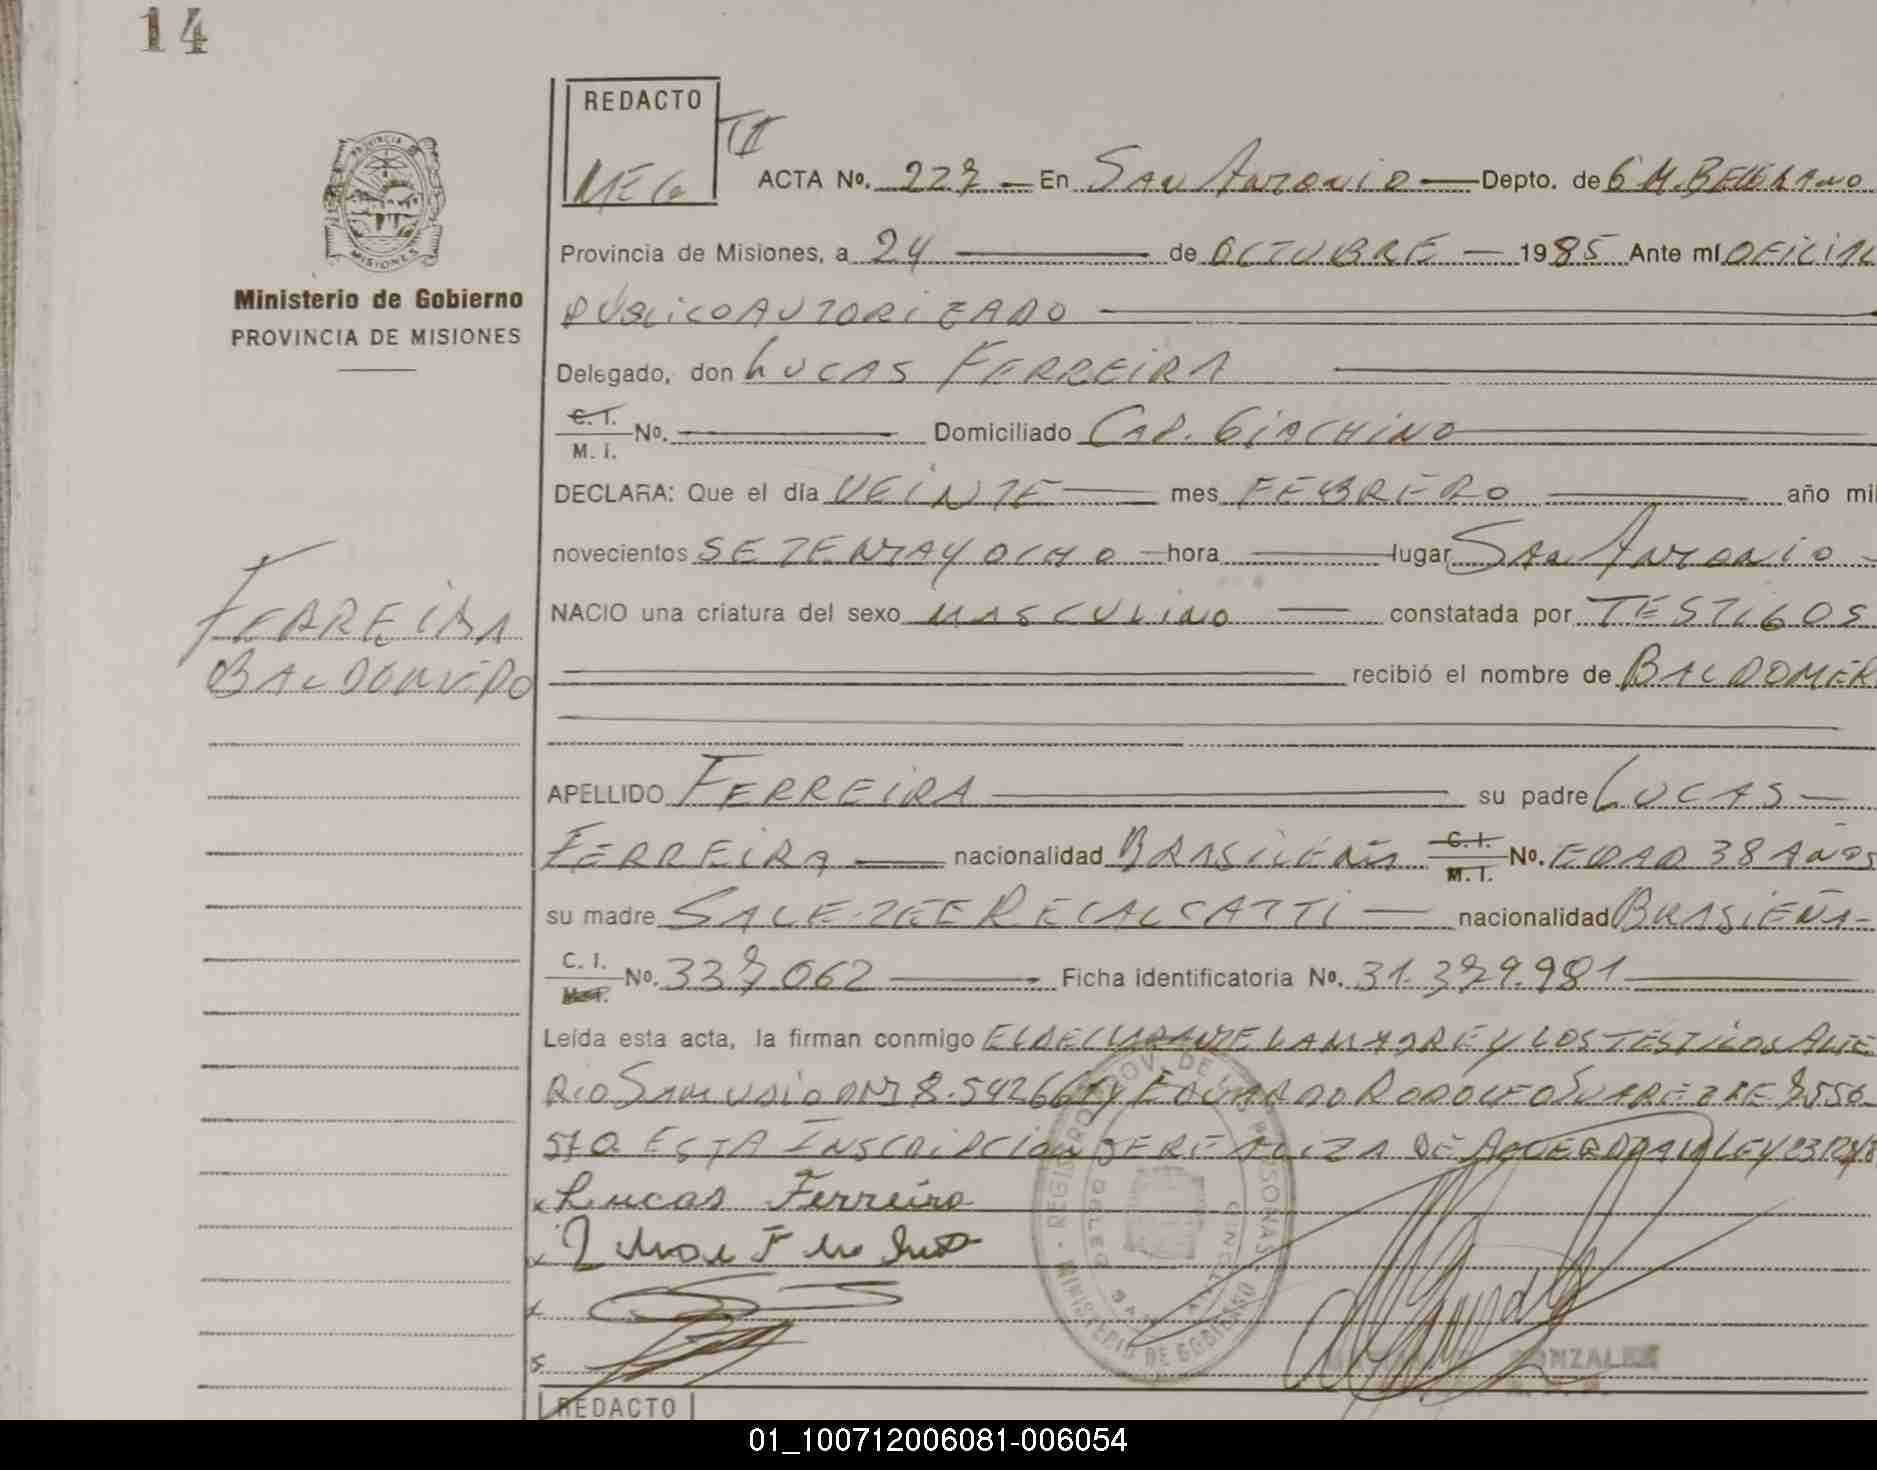 14
REDACTO
MEG
II
ACTA No. 227 En San Antonio Depto. de G M. BELGRANO
PROVINCIA
MISIONES
Ministerio de Gobierno
PROVINCIA DE MISIONES
Provincia de Misiones, a 24 de OCTUBRE 1985 Ante mí OFICIAL
PUBLICO AUTORIZADO
Delegado, don LUCAS FERREIRA
C. I.
M. I. No. Domiciliado CAP. GIACHINO
DECLARA: Que el día VEINTE mes FEBRERO año mil
novecientos SETENTA Y OCHO hora lugar SAN ANTONIO
NACIO una criatura del sexo MASCULINO constatada por TESTIGOS
FERREIRA
BALDOMERO
recibió el nombre de BALDOMER
APELLIDO FERREIRA su padre LUCAS
FERREIRA nacionalidad BRASILEÑA C. I. M. I. No. EDAD 38 AÑOS
su madre RECALCATTI nacionalidad BRASIEÑA
C. I. No. 337062 Ficha identificatoria No. 31.379.981
Leída esta acta, la firman conmigo EL DECLARANTE LA MADRE Y LOS TESTIGOS ALTE
RIO SAMUDIO DNI 8.542664 Y EDUARDO RODOLFO SUAREZ 7550
570 ESTA INSCRIPCION SE REALIZA DE ACUERDO A LA LEY
x Lucas Ferreira
REGISTRO PROV. DE LAS PERSONAS
MINISTERIO DE GOBIERNO
GONZALEZ
REDACTO
01_100712006081-006054